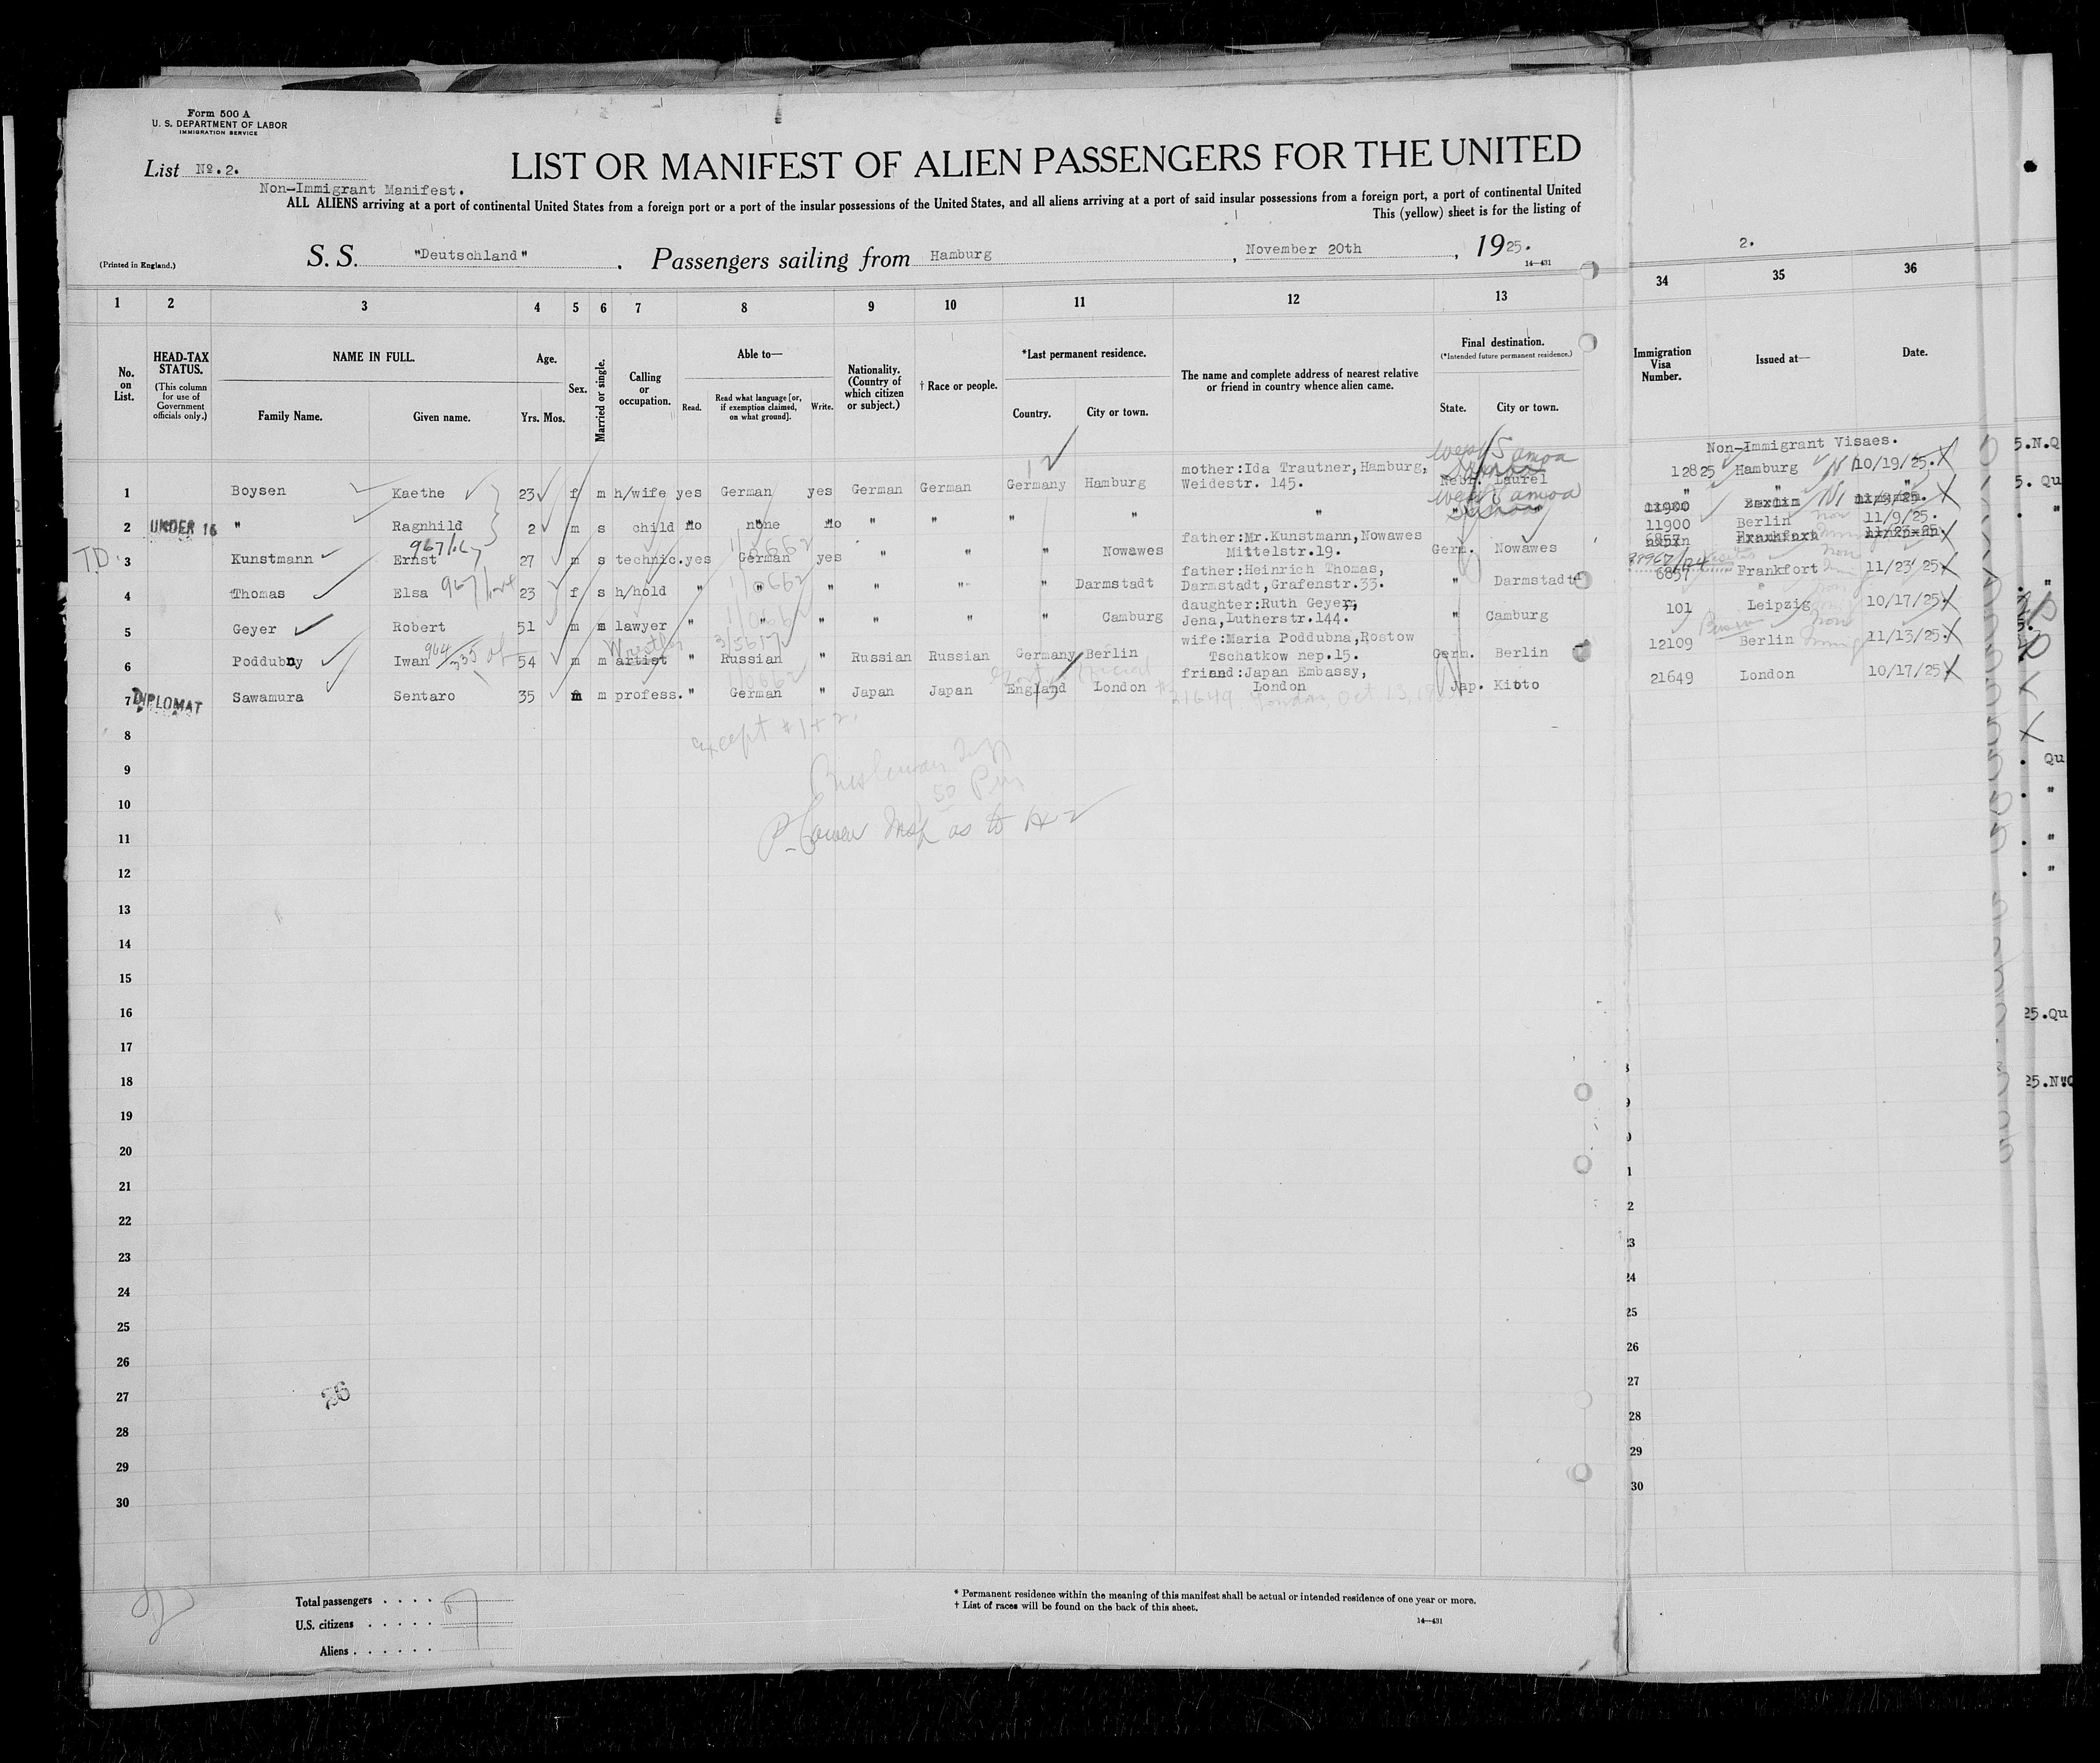 Form 500 A
U. S. DEPARTMENT OF LABOR
IMMIGRATION SERVICE
List No. 2.
LIST OR MANIFEST OF ALIEN PASSENGERS FOR THE UNITED
Non-Immigrant Manifest.
ALL ALIENS arriving at a port of continental United States from a foreign port or a port of the insular possessions of the United States, and all aliens arriving at a port of said insular possessions from a foreign port, a port of continental United
This (yellow) sheet is for the listing of
(Printed in England.)
S. S. "Deutschland". Passengers sailing from Hamburg, November 20th, 1925.
14—431
2.
1 2 3 4 5 6 7 8 9 10 11 12 13 34 35 36
No. on List.
HEAD-TAX STATUS.
(This column for use of Government officials only.)
NAME IN FULL.
Family Name. Given name.
Age.
Yrs. Mos.
Sex.
Married or single.
Calling or occupation.
Able to—
Read. Read what language [or, if exemption claimed, on what ground]. Write.
Nationality. (Country of which citizen or subject.)
† Race or people.
*Last permanent residence.
Country. City or town.
The name and complete address of nearest relative or friend in country whence alien came.
Final destination.
(*Intended future permanent residence.)
State. City or town.
Immigration Visa Number.
Issued at—
Date.
Non-Immigrant Visaes.
West Samoa
1 Boysen Kaethe 23 f m h/wife yes German yes German German Germany Hamburg mother:Ida Trautner,Hamburg, Weidestr. 145. Nebr. Laurel 12825 Hamburg NI 10/19/25. X
West Samoa
2 UNDER 16 " Ragnhild 2 m s child no none no " " " " " " " " "
11900 Berlin 11/9/25. X
TD 3 Kunstmann Ernst 27 m s technic. yes German yes " " " Nowawes father:Mr.Kunstmann,Nowawes Mittelstr.19. Germ. Nowawes 11900 Berlin 11/9/25.
4 Thomas Elsa 23 f s h/hold " " " " " " Darmstadt father:Heinrich Thomas, Darmstadt,Grafenstr.33. " Darmstadt 6857 Frankfort 11/23/25 X
5 Geyer Robert 51 m m lawyer " " " " " " Camburg daughter:Ruth Geyer, Jena,Lutherstr.144. " Camburg 101 Leipzig 10/17/25. X
Wrestler
6 Poddubny Iwan 54 m m artist " Russian " Russian Russian Germany Berlin wife:Maria Poddubna,Rostow Tschatkow nep.15. Germ. Berlin 12109 Berlin 11/13/25. X
7 DIPLOMAT Sawamura Sentaro 35 m m profess. " German " Japan Japan England London friend:Japan Embassy, London Jap. Kioto 21649 London 10/17/25 X
21649 London Oct 13,
Except #1+2.
8
9
10
11
12
13
14
15
16
17
18
19
20
21
22
23
24
25
26
27
28
29
30
26
Total passengers . . . .
U.S. citizens . . . . .
Aliens . . . . . .
* Permanent residence within the meaning of this manifest shall be actual or intended residence of one year or more.
† List of races will be found on the back of this sheet.
14—431
5.N.Q
5. Qu
Qu
25.Qu